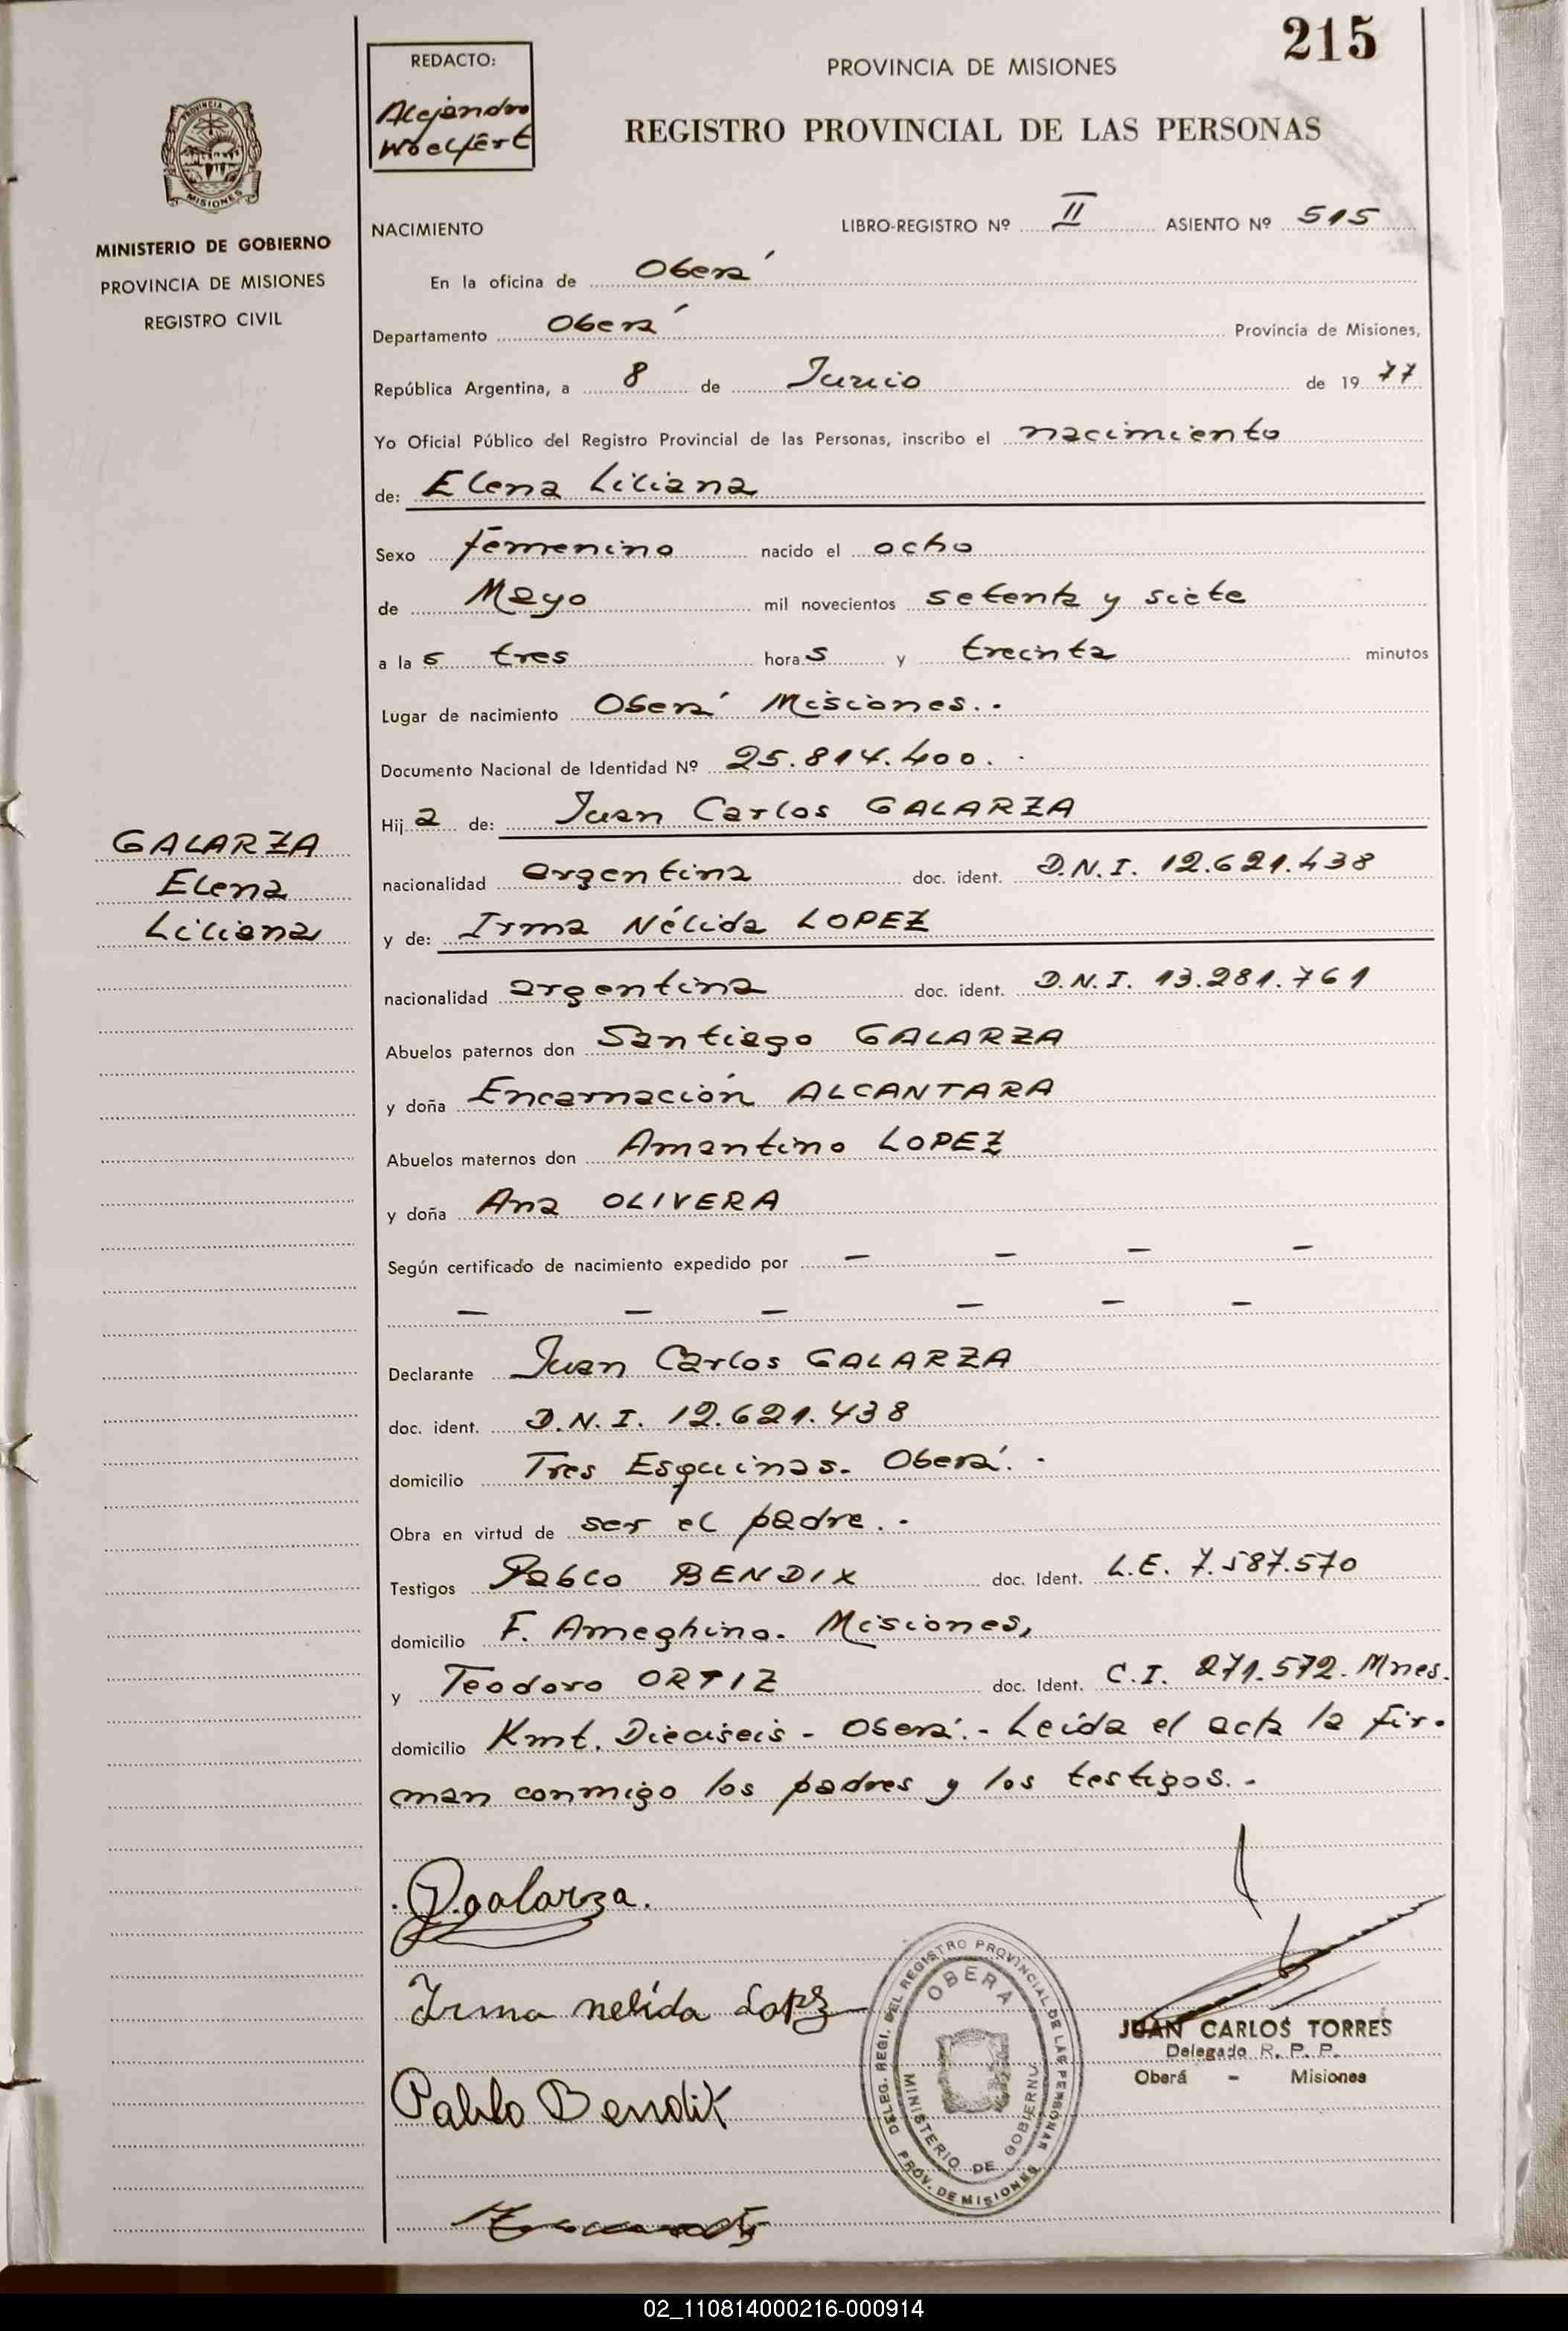 215
REDACTO:
Alejandro
Woelfert
PROVINCIA DE MISIONES
REGISTRO PROVINCIAL DE LAS PERSONAS
PROVINCIA DE
MISIONES
MINISTERIO DE GOBIERNO
PROVINCIA DE MISIONES
REGISTRO CIVIL
NACIMIENTO LIBRO-REGISTRO Nº II ASIENTO Nº 515
En la oficina de Oberá
Departamento Oberá Provincia de Misiones,
República Argentina, a 8 de Junio de 1977
Yo Oficial Público del Registro Provincial de las Personas, inscribo el nacimiento
de: Elena Liliana
Sexo femenino nacido el ocho
de Mayo mil novecientos setenta y siete
a la s tres hora s y treinta minutos
Lugar de nacimiento Oberá Misiones.-
Documento Nacional de Identidad Nº 25.814.400.-
Hij a de: Juan Carlos GALARZA
GALARZA
Elena
Liliana
nacionalidad argentina doc. ident. D.N.I. 12.621.438
y de: Irma Nélida LOPEZ
nacionalidad argentina doc. ident. D.N.I. 13.281.761
Abuelos paternos don Santiago GALARZA
y doña Encarnación ALCANTARA
Abuelos maternos don Amantino LOPEZ
y doña Ana OLIVERA
Según certificado de nacimiento expedido por — — — —
— — — — — —
Declarante Juan Carlos GALARZA
doc. ident. D.N.I. 12.621.438
domicilio Tres Esquinas. Oberá.-
Obra en virtud de ser el padre.-
Testigos Pablo BENDIX doc. Ident. L.E. 7.587.570
domicilio F. Ameghino. Misiones,
y Teodoro ORTIZ doc. Ident. C.I. 271.572. Mnes.
domicilio Kmt. Dieciseis - Oberá.- Leída el acta la fir-
man conmigo los padres y los testigos.-
J.galarza.
Irma nelída Lopez
Pablo Bendik
DELEG. REGI. DEL REGISTRO PROVINCIAL DE LAS PERSONAS
PROV. DE MISIONES
OBERA
MINISTERIO DE GOBIERNO
JUAN CARLOS TORRES
Delegado R. P. P.
Oberá - Misiones
02_110814000216-000914